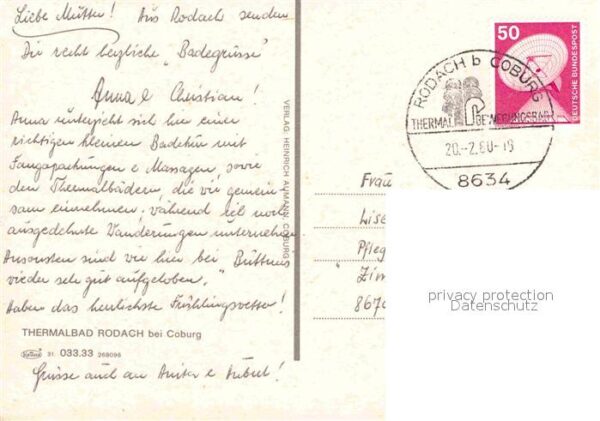 Liebe Mutter! Aus Rodach senden
Dir recht herzliche "Badegrüsse"
Anna & Christian!
Anna unterzieht sich hier einer
richtigen kleinen Badekur mit
Fangopackungen & Massagen, sowie
den Thermalbädern, die wir gemein-
sam einnehmen, während ich noch
ausgedehnte Wanderungen unternehme.
Ansonsten sind wir hier bei
wieder sehr gut aufgehoben.
Haben das herrlichste Frühlingswetter!
THERMALBAD RODACH bei Coburg
31 033.33 268096
Grüsse auch an Anita &
VERLAG HEINRICH AUMANN COBURG
50
DEUTSCHE BUNDESPOST
RODACH b COBURG
THERMAL BEWEGUNGSBAD
20.-2.80-19
8634
Frau
Lise
Pfleg
"Zim
8670
privacy protection
Datenschutz